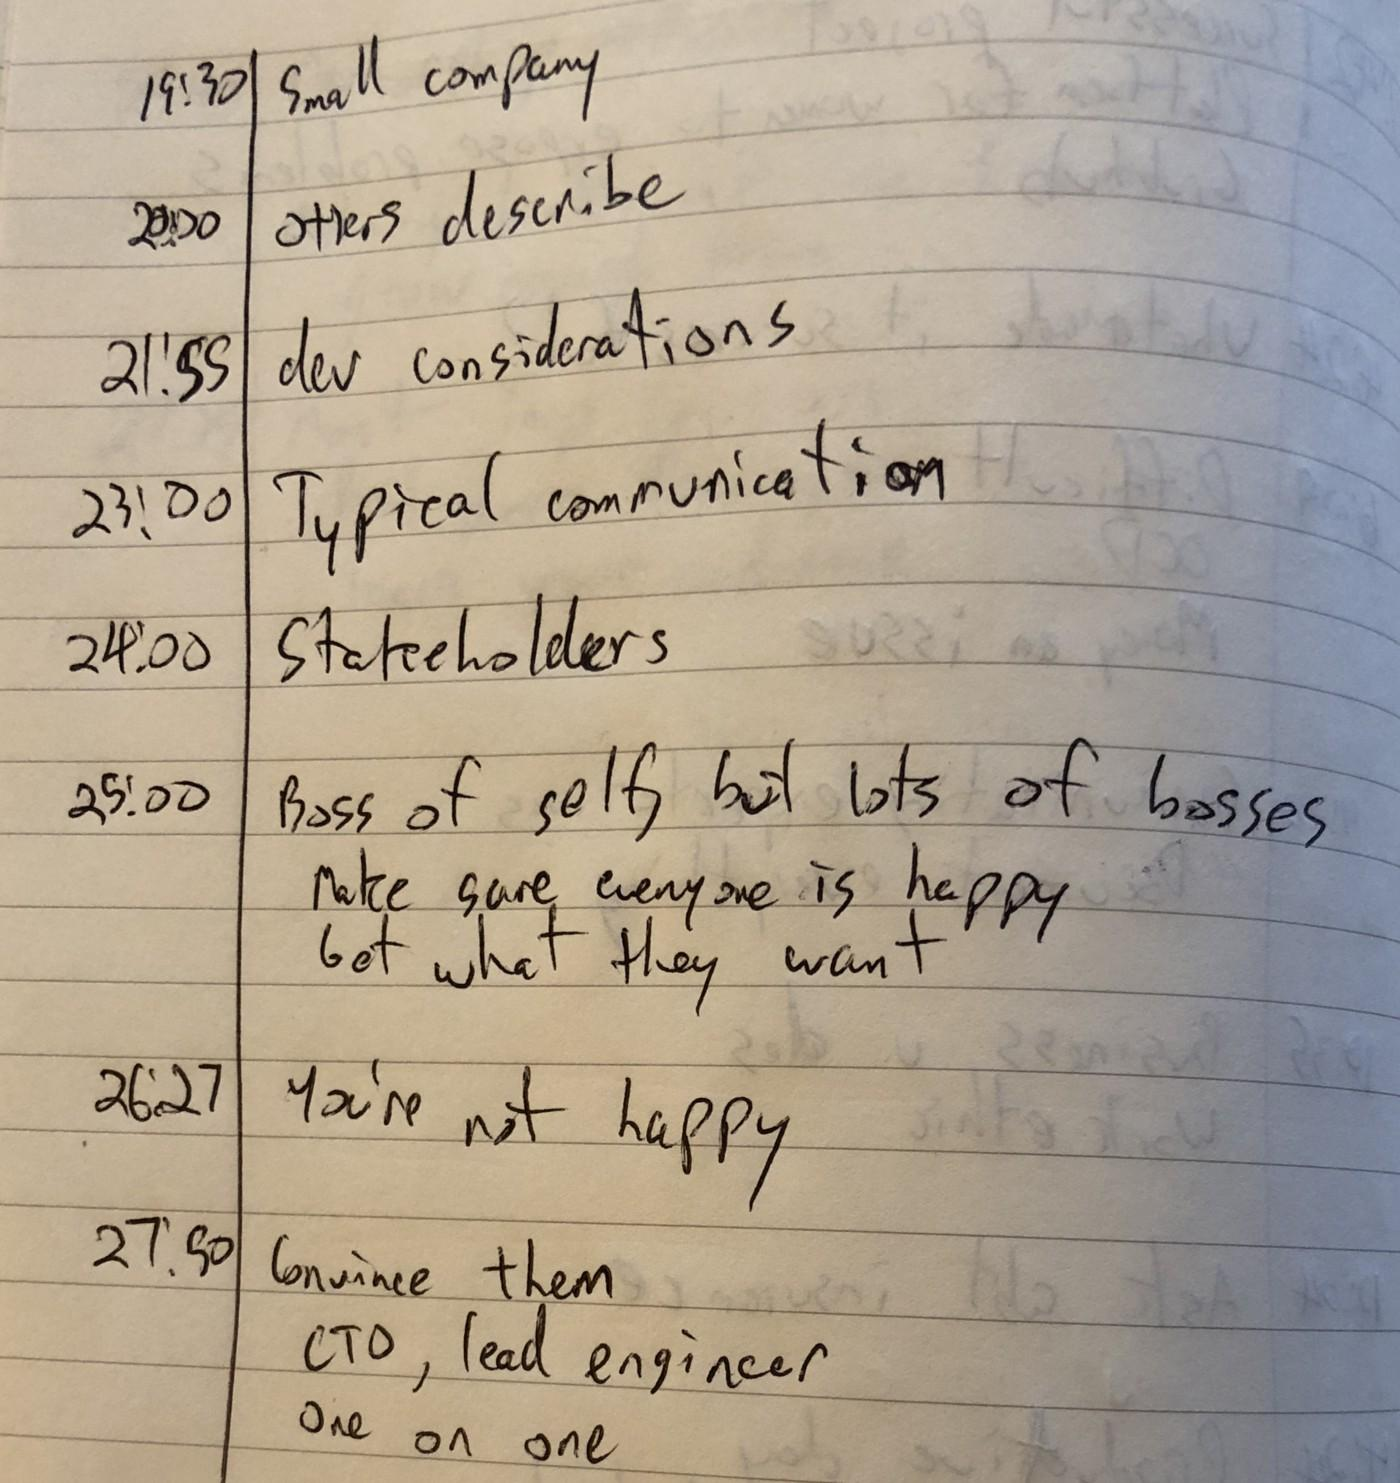 19:30 Small company
20:00 others describe
21:55 dev considerations
23:00 Typical communication
24:00 Stakeholders
25:00 Boss of self, but lots of bosses
Make sure everyone is happy
Get what they want
26:27 You're not happy
27:50 Convince them
CTO, lead engineer
One on one